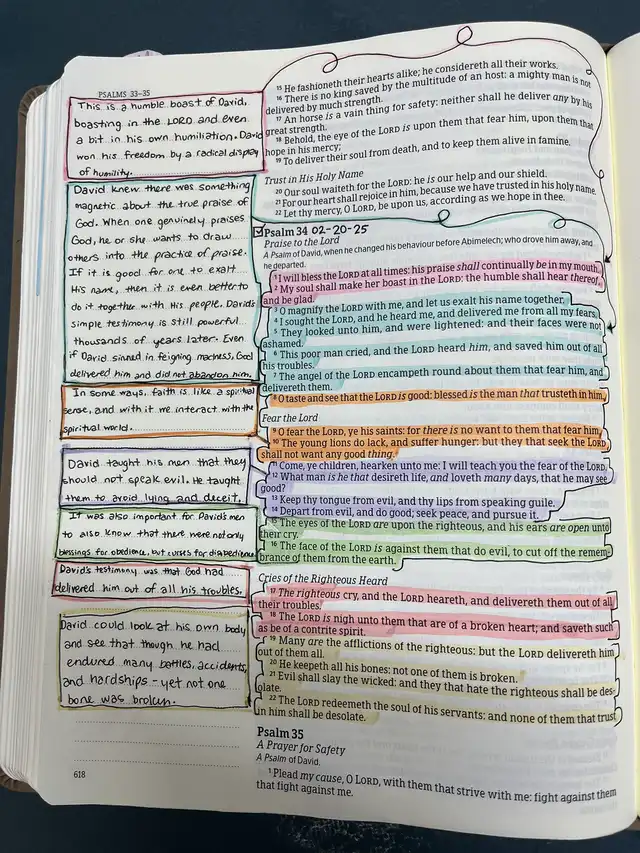 PSALMS 33–35
This is a humble boast of David,
boasting in the LORD and even
a bit in his own humiliation. David
won his freedom by a radical display
of humility.
David knew there was something
magnetic about the true praise of
God. When one genuinely praises
God, he or she wants to draw
others into the practice of praise.
If it is good for one to exalt
His name, then it is even better to
do it together with His people. David's
simple testimony is still powerful
thousands of years later. Even
if David sinned in feigning madness, God
delivered him and did not abandon him.
In some ways, faith is like a spiritual
sense, and with it we interact with the
spiritual world.
David taught his men that they
should not speak evil. He taught
them to avoid lying and deceit.
It was also important for David's men
to also know that there were not only
blessings for obedience, but curses for disobedience
David's testimony was that God had
delivered him out of all his troubles.
David could look at his own body
and see that though he had
endured many battles, accidents,
and hardships - yet not one
bone was broken.
618
15 He fashioneth their hearts alike; he considereth all their works.
16 There is no king saved by the multitude of an host: a mighty man is not
delivered by much strength.
17 An horse is a vain thing for safety: neither shall he deliver any by his
great strength.
18 Behold, the eye of the LORD is upon them that fear him, upon them that
hope in his mercy;
19 To deliver their soul from death, and to keep them alive in famine.
Trust in His Holy Name
20 Our soul waiteth for the LORD: he is our help and our shield.
21 For our heart shall rejoice in him, because we have trusted in his holy name.
22 Let thy mercy, O LORD, be upon us, according as we hope in thee.
Psalm 34 02-20-25
Praise to the Lord
A Psalm of David, when he changed his behaviour before Abimelech; who drove him away, and
he departed.
1 I will bless the LORD at all times: his praise shall continually be in my mouth.
2 My soul shall make her boast in the LORD: the humble shall hear thereof,
and be glad.
3 O magnify the LORD with me, and let us exalt his name together.
4 I sought the LORD, and he heard me, and delivered me from all my fears.
5 They looked unto him, and were lightened: and their faces were not
ashamed.
6 This poor man cried, and the LORD heard him, and saved him out of all
his troubles.
7 The angel of the LORD encampeth round about them that fear him, and
delivereth them.
8 O taste and see that the LORD is good: blessed is the man that trusteth in him.
Fear the Lord
9 O fear the LORD, ye his saints: for there is no want to them that fear him.
10 The young lions do lack, and suffer hunger: but they that seek the LORD
shall not want any good thing.
11 Come, ye children, hearken unto me: I will teach you the fear of the LORD.
12 What man is he that desireth life, and loveth many days, that he may see
good?
13 Keep thy tongue from evil, and thy lips from speaking guile.
14 Depart from evil, and do good; seek peace, and pursue it.
15 The eyes of the LORD are upon the righteous, and his ears are open unto
their cry.
16 The face of the LORD is against them that do evil, to cut off the remem-
brance of them from the earth.
Cries of the Righteous Heard
17 The righteous cry, and the LORD heareth, and delivereth them out of all
their troubles.
18 The LORD is nigh unto them that are of a broken heart; and saveth such
as be of a contrite spirit.
19 Many are the afflictions of the righteous: but the LORD delivereth him
out of them all.
20 He keepeth all his bones: not one of them is broken.
21 Evil shall slay the wicked: and they that hate the righteous shall be des-
olate.
22 The LORD redeemeth the soul of his servants: and none of them that trust
in him shall be desolate.
Psalm 35
A Prayer for Safety
A Psalm of David.
1 Plead my cause, O LORD, with them that strive with me: fight against them
that fight against me.